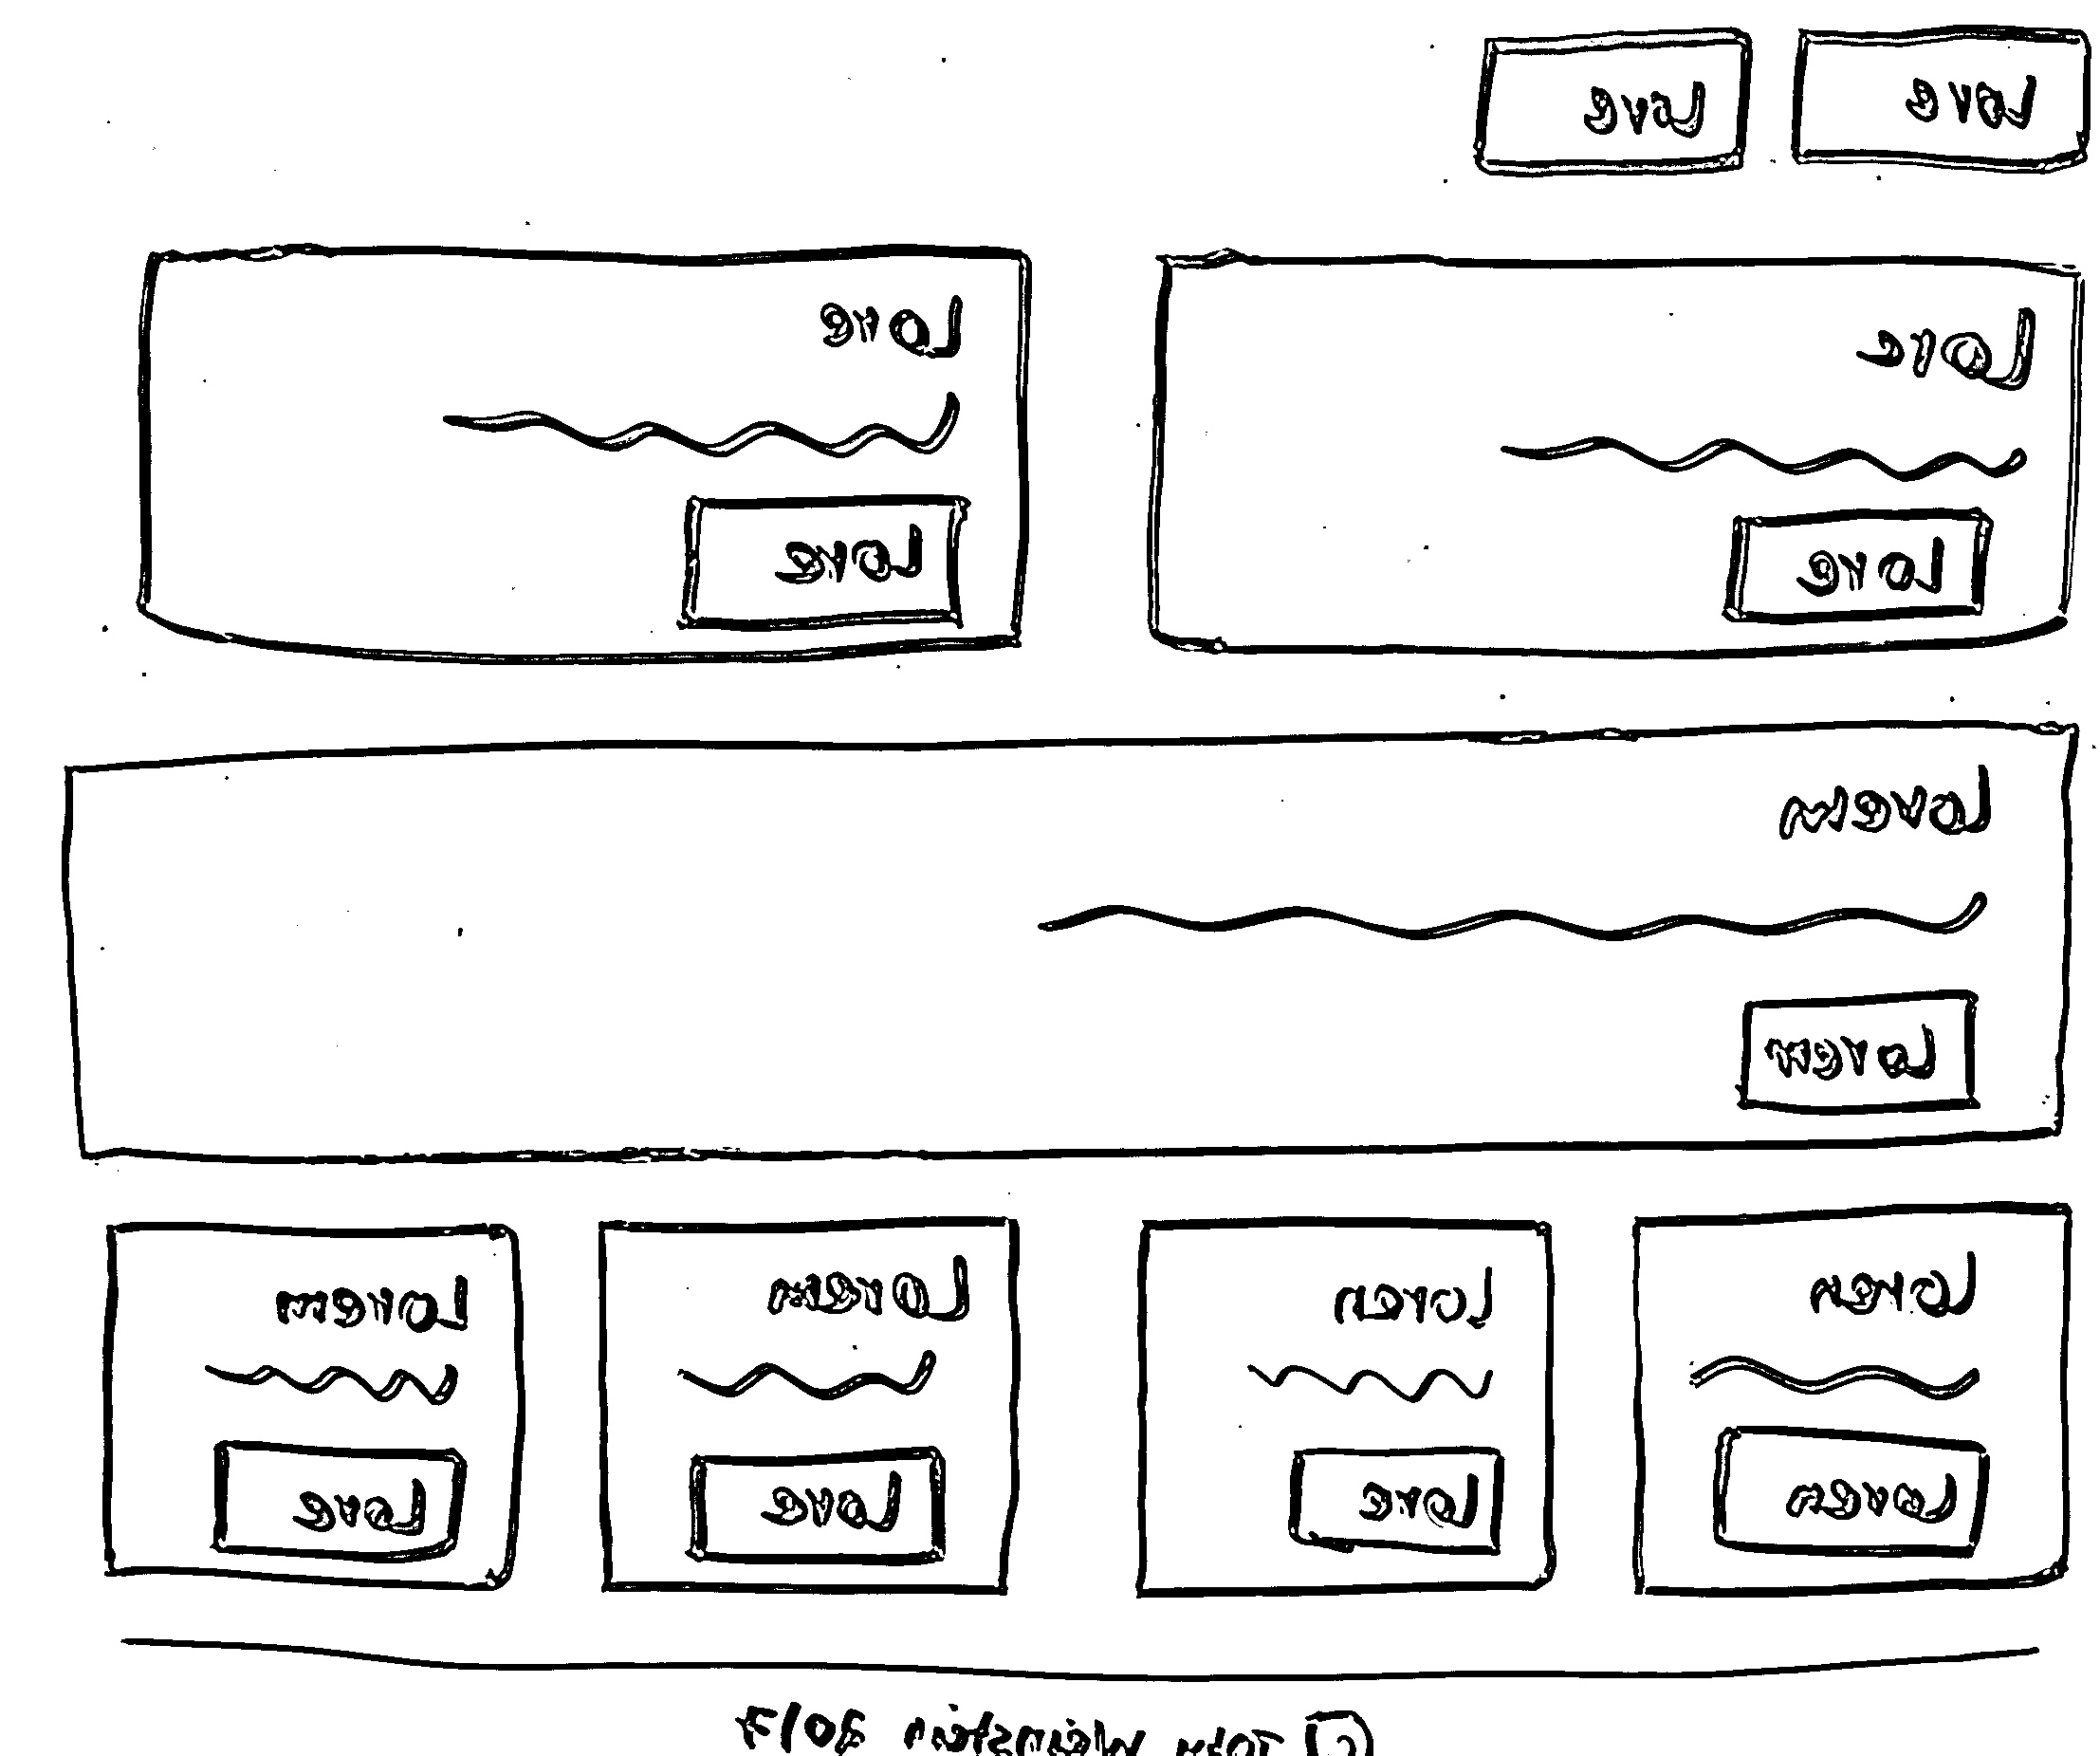 Lore Lore
Lore Lore
Lore Lore
Lorem
Lorem
Loren Loren Lorem Lorem
Loren Lore Lore Lore
© John Weinstein 2017